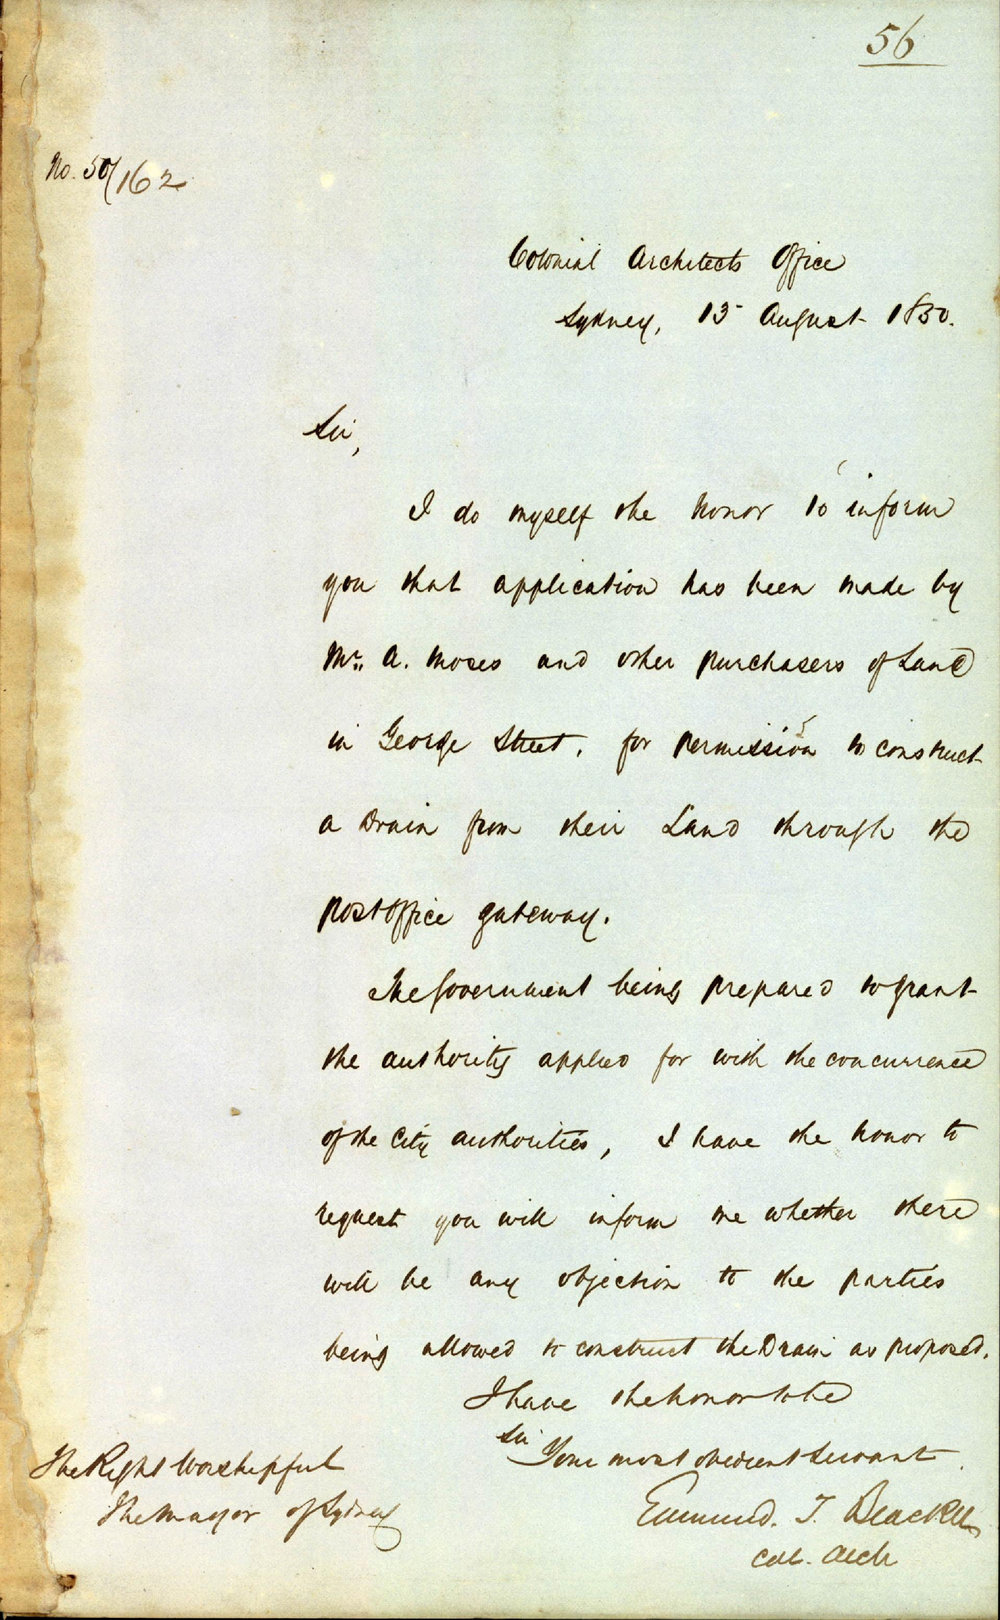 56
No. 50/162
Colonial Architects Office
Sydney, 13 August 1850.
Sir,
I do myself the honor to inform
you that application has been made by
Mr. A. Moses and other purchasers of Land
in George Street, for permission to construct
a Drain from their Land through the
Post Office gateway.
The Government being prepared to grant
the authority applied for with the concurrence
of the City authorities, I have the honor to
request you will inform me whether there
will be any objection to the parties
being allowed to construct the Drain as proposed.
I have the honor to be
Sir
Your most obedient Servant
The Right Worshipful
The Mayor of Sydney
Edmund. T. Blackett
Col. Arch